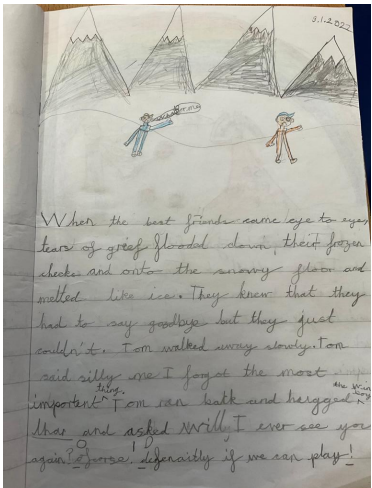 9.1.2022
When the best friends came eye to eye,
tears of grief flooded down, their frozen
cheeks and onto the snowy floor and
melted like ice. They knew that they
had to say goodbye but they just
couldn't. Tom walked away slowly. Tom
said silly me I forgot the most
important thing. Tom ran back and hugged the
and asked will I ever see you
again? Ofcorse! defenaitly if we can play!